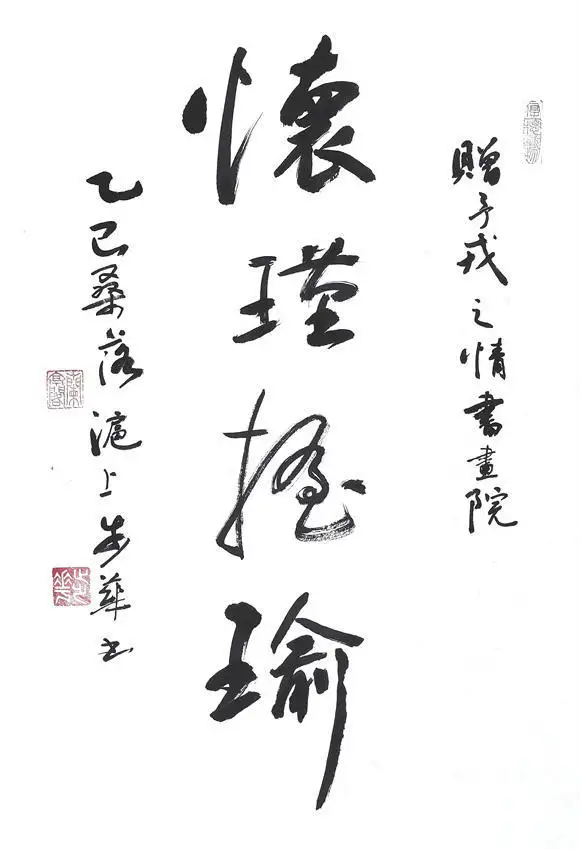 贈予戎之情書畫院
懷瑾握瑜
乙巳桑落滬上步華书